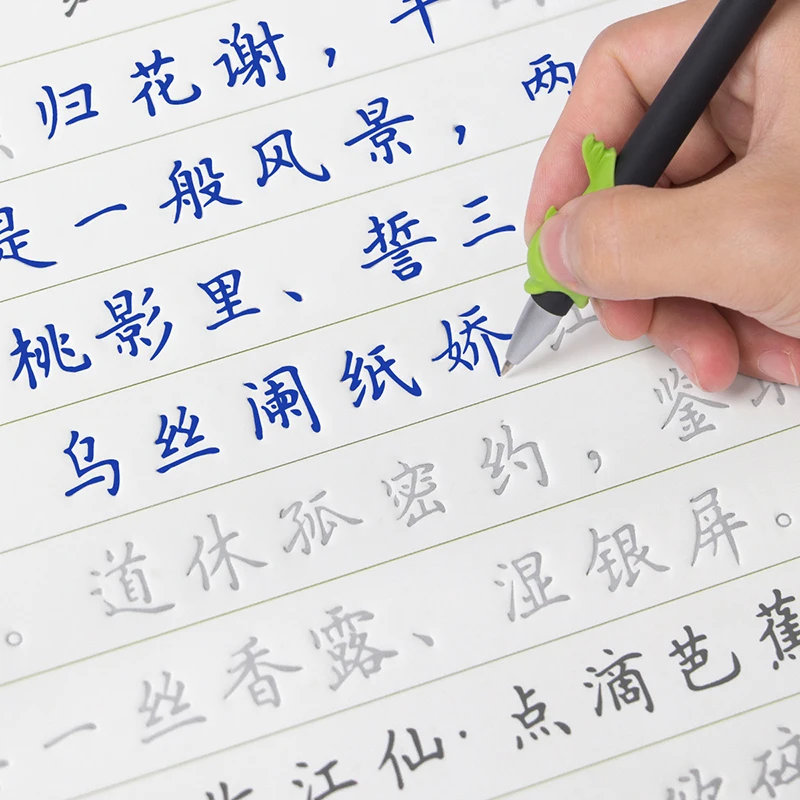 归花谢，
是一般风景，两
桃影里、誓三
乌丝阑纸娇
鉴
道休孤密约，
。一丝香露、湿银屏。
江仙·点滴芭蕉